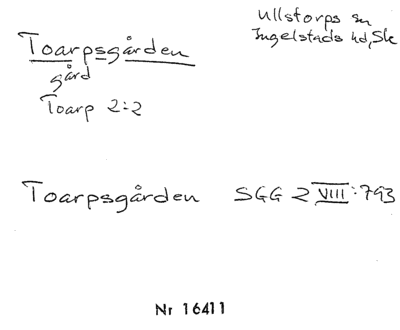 Ullstorps sn
Ingelstads hd, Sk
Toarpsgården
gård
Toarp 2:2
Toarpsgården SGG 2 VIII:793
Nr 16411